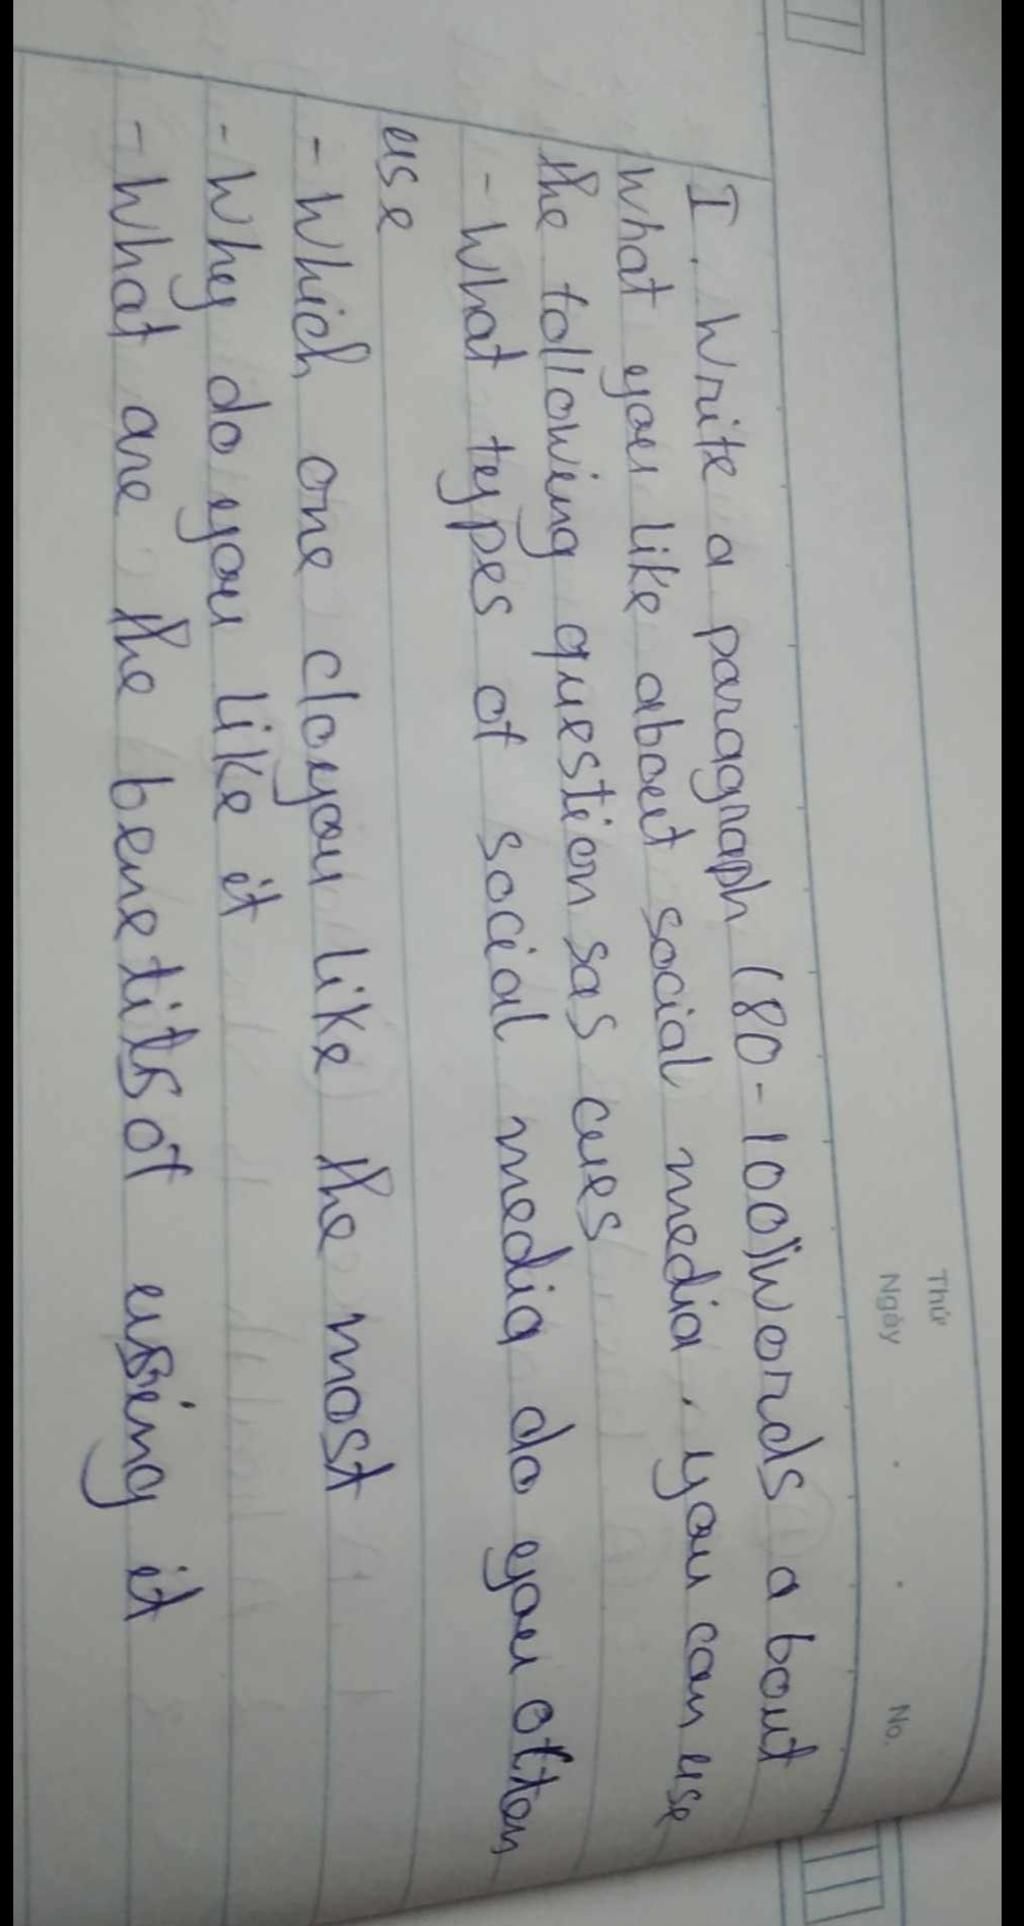 Thứ
Ngày
No.
I. Write a paragraph (80-100) words about
what you like about social media, you can use
the following questions as cues
- What types of social media do you often
use
- Which one do you like the most
- Why do you like it
- What are the benefits of using it